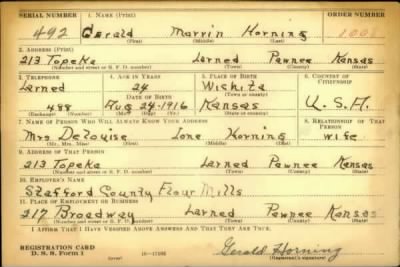 SERIAL NUMBER 1. NAME (Print) ORDER NUMBER
492 Gerald Marvin Horning
(First) (Middle) (Last)
2. ADDRESS (Print)
213 Topeka Larned Pawnee Kansas
(Number and street or R. F. D. number) (Town) (County) (State)
3. TELEPHONE 4. AGE IN YEARS 5. PLACE OF BIRTH 6. COUNTRY OF CITIZENSHIP
Larned 24 Wichita
DATE OF BIRTH (Town or county)
488 Aug 24-1916 Kansas U.S.A.
(Mo.) (Day) (Yr.) (State or country)
7. NAME OF PERSON WHO WILL ALWAYS KNOW YOUR ADDRESS 8. RELATIONSHIP OF THAT PERSON
Mrs Ione Horning wife
(Mr., Mrs., Miss) (First) (Middle) (Last)
9. ADDRESS OF THAT PERSON
213 Topeka Larned Pawnee Kansas
(Number and street or R. F. D. number) (Town) (County) (State)
10. EMPLOYER'S NAME
Stafford County Flour Mills
11. PLACE OF EMPLOYMENT OR BUSINESS
217 Broadway Larned Pawnee Kansas
(Number and street or R. F. D. number) (Town) (County) (State)
I AFFIRM THAT I HAVE VERIFIED ABOVE ANSWERS AND THAT THEY ARE TRUE.
REGISTRATION CARD
D. S. S. Form 1 (over) Gerald Horning
(Registrant's signature)